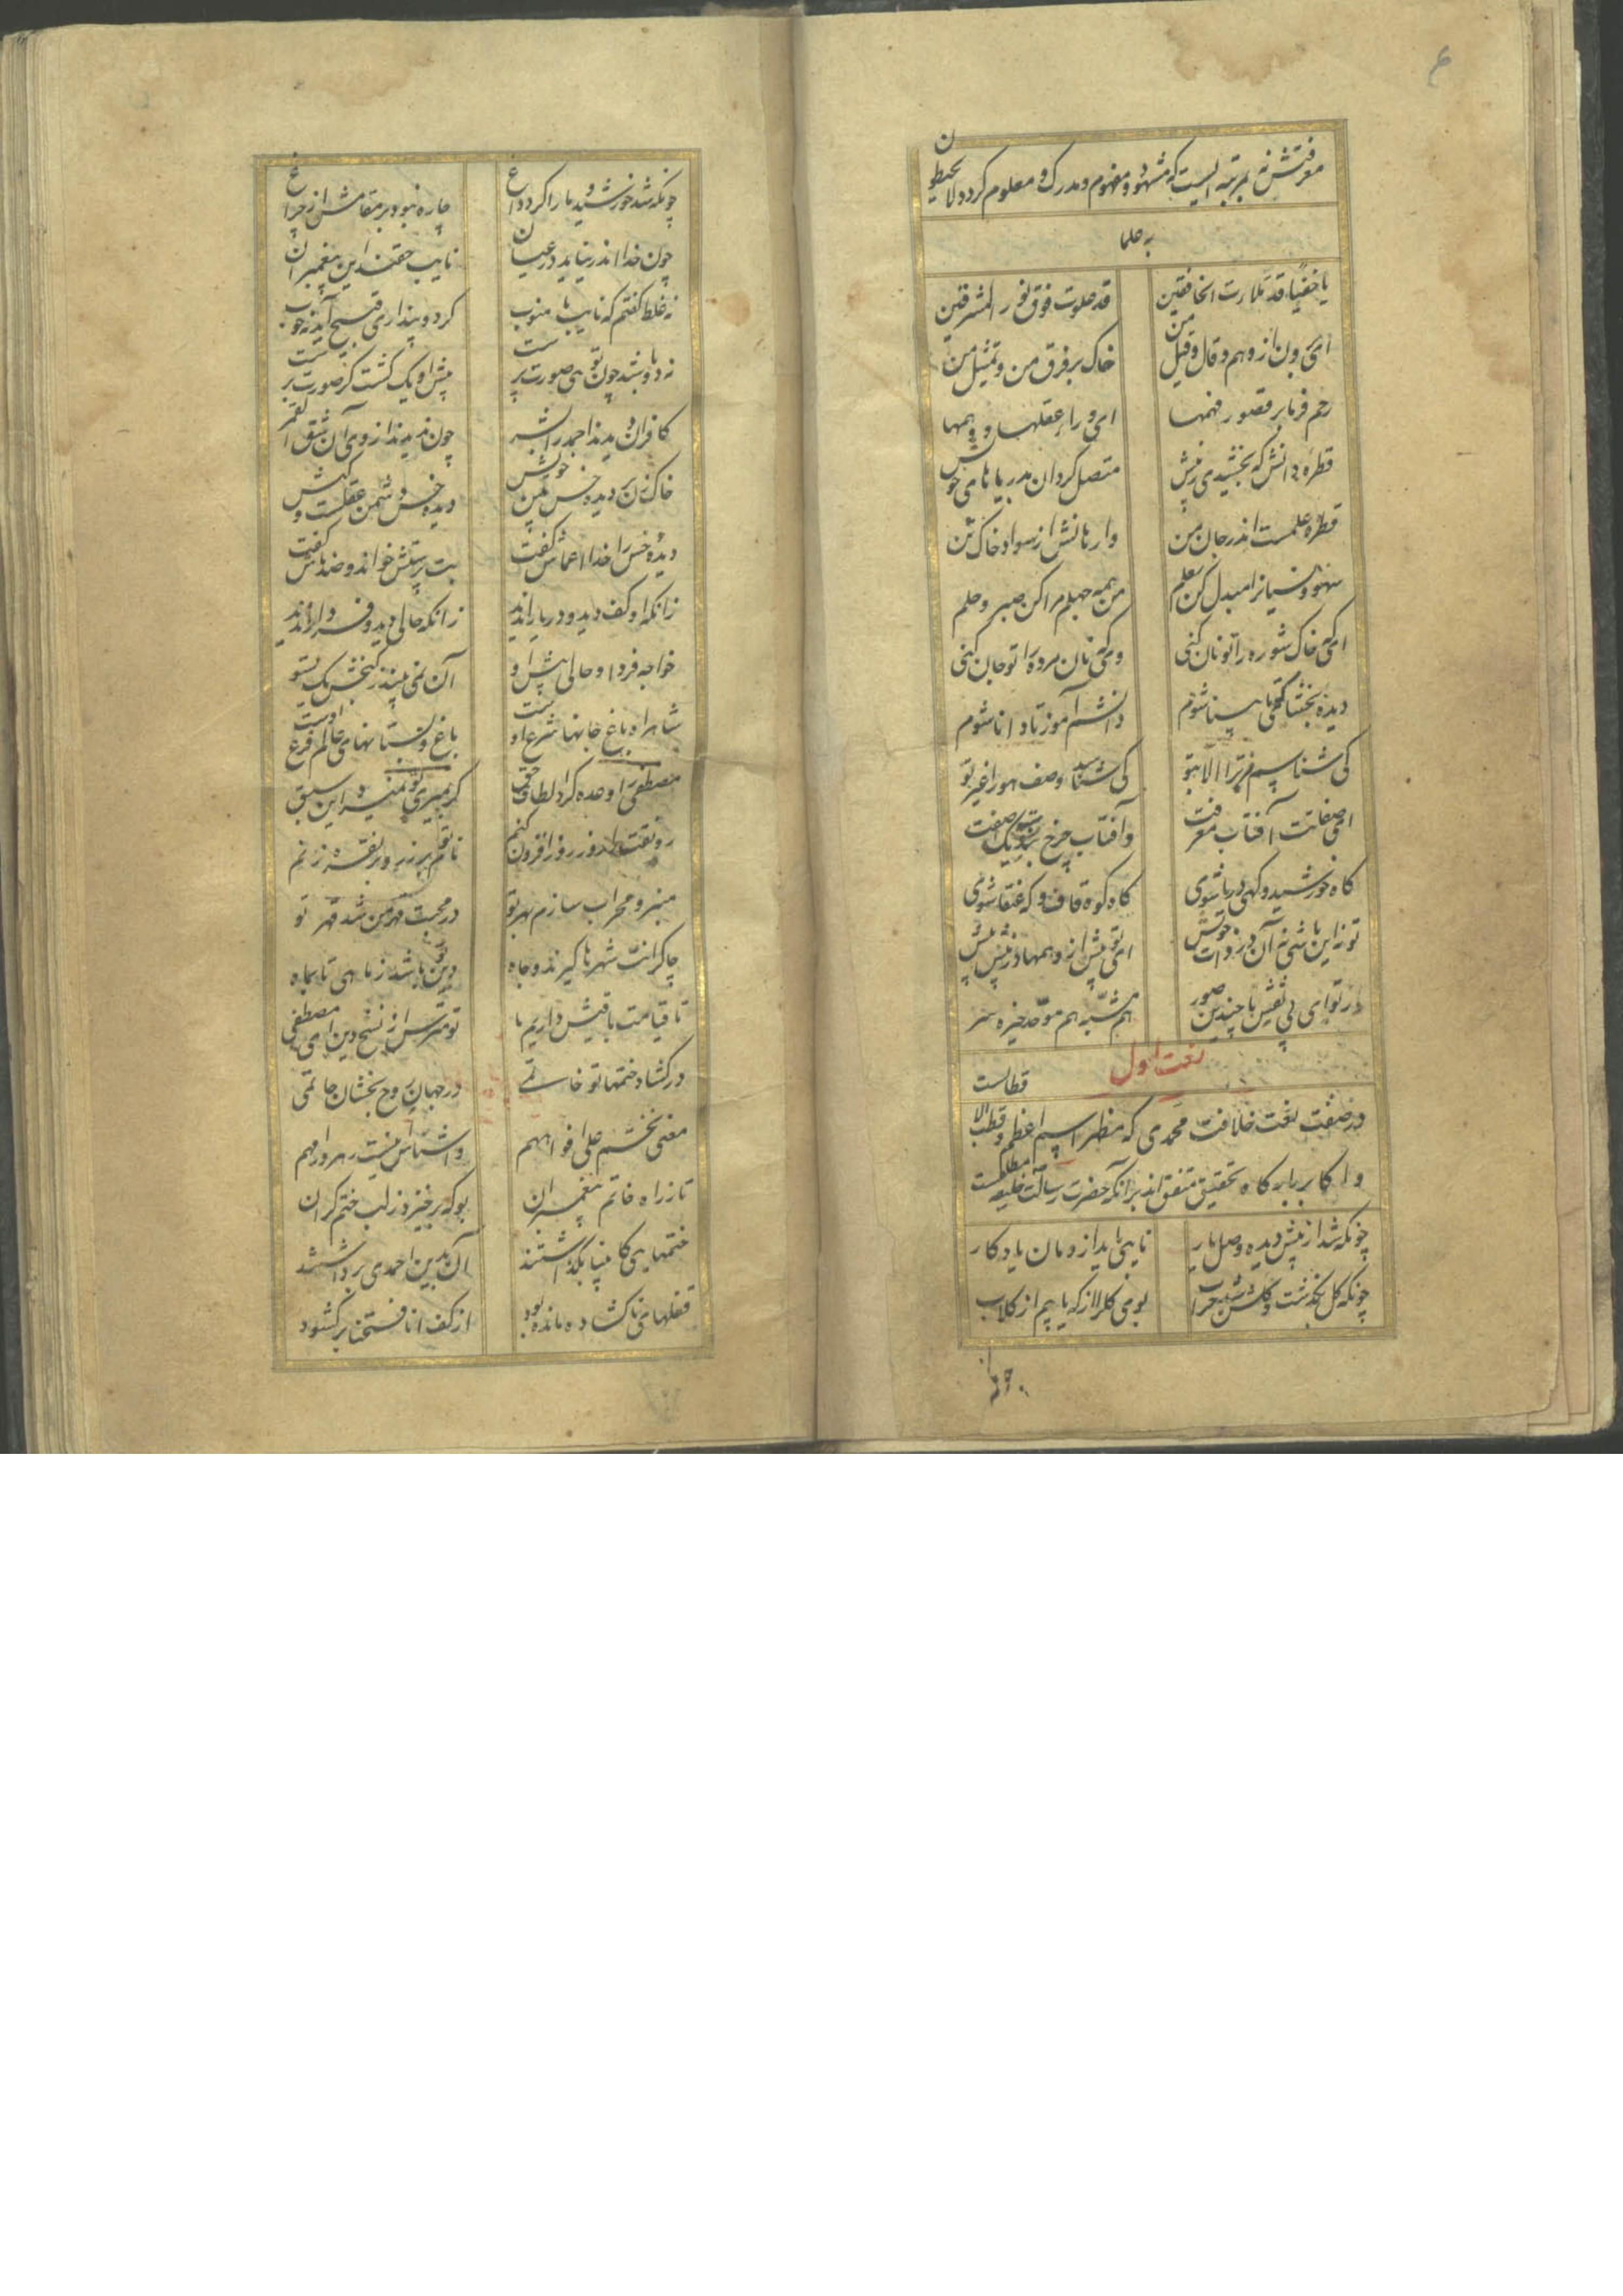 معرفتش نه بمرتبه ایست که مشهود و مفهوم و مدرک و معلوم کردد ولا یحیطون
به علما
یا خفیا قد ملات الخافقین قد علوت فوق نور المشرقین
ای برون از وهم و قال و قیل من خاک بر فرق من و تمثیل من
رحم فرما بر قصور فهمها ای ورای عقلها و وهمها
قطره دانش که بخشیدی ز پیش متصل کردان بدریاهای خویش
قطره علمست اندر جان من وا رهانش از سواد خاک تن
سهو و نسیانرا مبدل کن بعلم من همه جهلم مرا کن صبر و حلم
ای که خاک شوره را تو نان کنی وی که نان مرده را تو جان کنی
دیده بخشا تا که بینا شوم دانشم آموز تا دانا شوم
کی شناسیم مر ترا الا بتو کی شناسد وصف هو را غیر تو
ای صفاتت آفتاب معرفت وآفتاب چرخ بند یک صفت
کاه خورشید و کهی دریا شوی کاه کوه قاف و که عنقا شوی
تو نه این باشی نه آن در ذات خویش ای تو بیش از وهمها در پیش پیش
از تو ای بی نقش با چندین صور هم مشبه هم موحد خیره سر
نعت اول
در صفت نعت خلافت محمدی که مظهر اسم اعظم و قطب الاقطابست
و اکابر بارکاه تحقیق متفق اند برانکه حضرت رسالت خلیفه مطلقست
چونکه شد از پیش دیده وصل یار نایبی باید ازو مان یادکار
چونکه کل بکذشت و کلشن شد خراب بوی کل را از که یابیم از کلاب
چونکه شد خورشید و ما را کرد داغ چاره نبود بر مقامش از چراغ
چون خدا اندر نیاید در عیان نایب حقند این پیغمبران
نه غلط کفتم که نایب با منوب کر دو پنداری قبیح آید نه خوب
نه دو باشد چون تویی صورت پرست پیش او یک کشت کز صورت برست
کافران دیدند احمد را بشر چون ندیدند از وی آن شق القمر
خاک زن بر دیده حس بین خویش دیده حس دشمن عقلست و کیش
دیده حس را خدا اعماش کفت بت پرستش خواند و ضد ماش کفت
زانکه او کف دید و دریا را ندید زانکه حالی دید و فردا را ندید
خواجه فردا و حالی پیش او آن نمی بیند ز کنجش یک تسو
شاهراه باغ جانها شرع اوست باغ و بستانهای عالم فرع اوست
مصطفی را وعده کرد الطاف حق کر بمیری تو نمیرد این سبق
رونقت را روز روز افزون کنم نام تو بر زر و بر نقره زنم
منبر و محراب سازم بهر تو در محبت قهر من شد قهر تو
چاکرانت شهرها کیرند و جاه دین تو باشد ز ماهی تا بماه
تا قیامت باقیش داریم ما تو مترس از نسخ دین ای مصطفی
در کشاد ختمها تو خاتمی در جهان روح بخشان حاتمی
معنی نختم علی افواههم واشناس اینست رهرو را مهم
تا ز راه خاتم پیغمبران بو که برخیزد ز لب ختم کران
ختمهایی کانبیا بکذاشتند آن بدین احمدی برداشتند
قفلهای ناکشاده مانده بود از کف انا فتحنا بر کشود